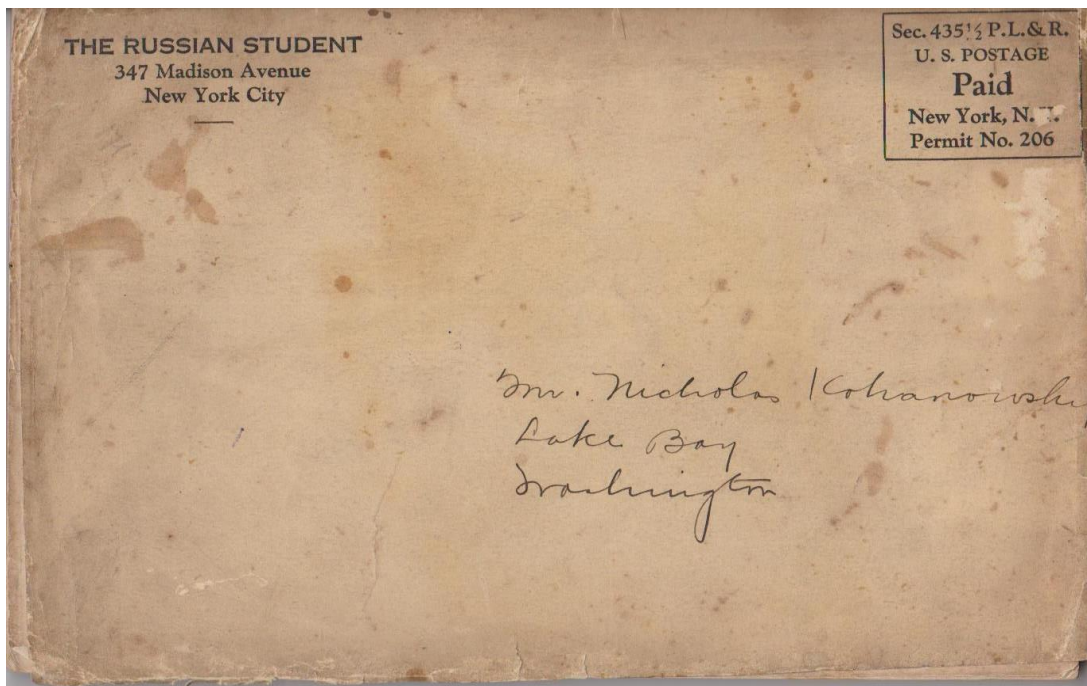 THE RUSSIAN STUDENT
347 Madison Avenue
New York City
Sec. 435½ P.L.& R.
U. S. POSTAGE
Paid
New York, N.
Permit No. 206
Mr. Nicholas Kohanowski,
Lake Bay
Washington